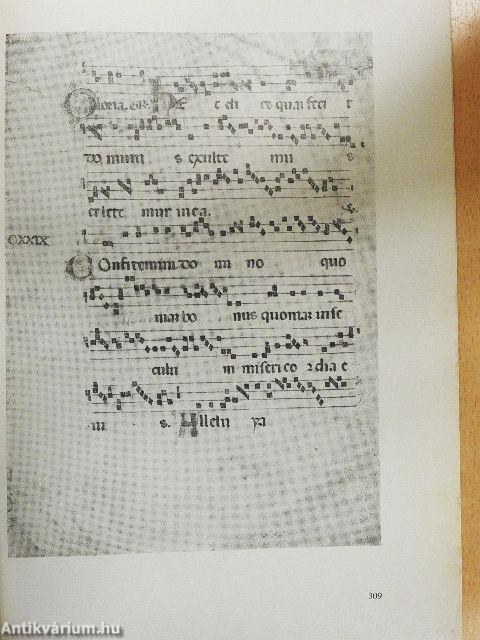 Gloria. GR. HEc di es quaʒ feci t
do minus exulte mu s
et lete mur in ea. &
CXXIX
Confitemini do mi no quo
niam bo nus quoniam in se
culu m miseri co rdia e
iu s. Allelu ya
309
Antikvárium.hu